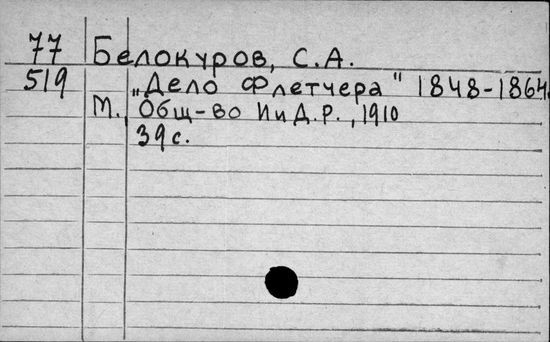 77 Белокуров, С.А.
519 „Дело Флетчера" 1848-1864.
М., Общ-во И и Д.Р., 1910
39 с.